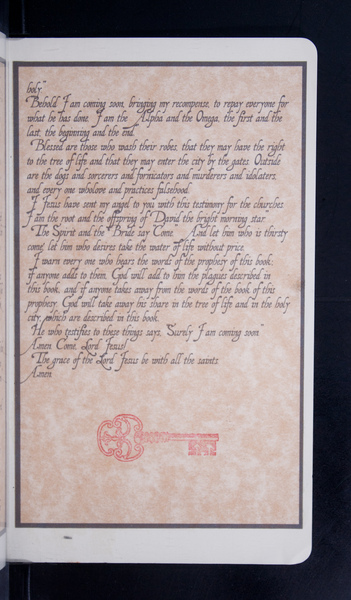 holy."
"Behold, I am coming soon, bringing my recompense, to repay everyone for
what he has done. I am the Alpha and the Omega, the first and the
last, the beginning and the end."
Blessed are those who wash their robes, that they may have the right
to the tree of life and that they may enter the city by the gates. Outside
are the dogs and sorcerers and fornicators and murderers and idolaters,
and every one wholove and practices falsehood.
"I Jesus have sent my angel to you with this testimony for the churches.
I am the root and the offspring of David, the bright morning star."
The Spirit and the Bride say "Come." And let him who is thirsty
come, let him who desires take the water of life without price.
I warn every one who hears the words of the prophesy of this book:
if anyone adds to them, God will add to him the plagues described in
this book, and if anyone takes away from the words of the book of this
prophesy, God will take away his share in the tree of life and in the holy
city, which are described in this book.
He who testifies to these things says, "Surely I am coming soon."
Amen. Come, Lord Jesus!
The grace of the Lord Jesus be with all the saints.
Amen.